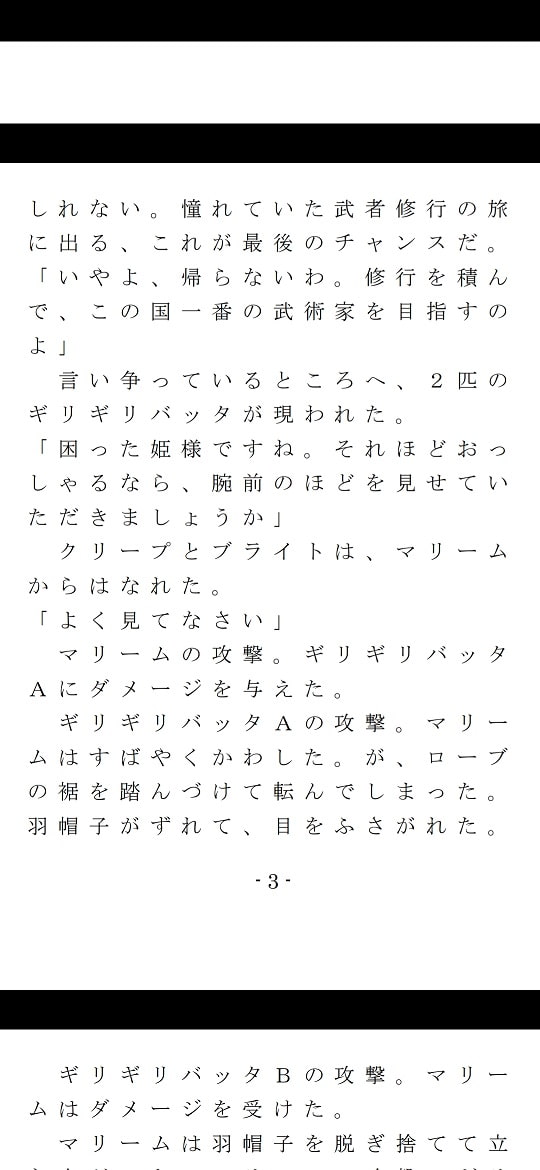 しれない。憧れていた武者修行の旅
に出る、これが最後のチャンスだ。
「いやよ、帰らないわ。修行を積ん
で、この国一番の武術家を目指すの
よ」
　言い争っているところへ、２匹の
ギリギリバッタが現われた。
「困った姫様ですね。それほどおっ
しゃるなら、腕前のほどを見せてい
ただきましょうか」
　クリープとブライトは、マリーム
からはなれた。
「よく見てなさい」
　マリームの攻撃。ギリギリバッタ
Ａにダメージを与えた。
　ギリギリバッタＡの攻撃。マリー
ムはすばやくかわした。が、ローブ
の裾を踏んづけて転んでしまった。
羽帽子がずれて、目をふさがれた。
- 3 -
　ギリギリバッタＢの攻撃。マリー
ムはダメージを受けた。
　マリームは羽帽子を脱ぎ捨てて立